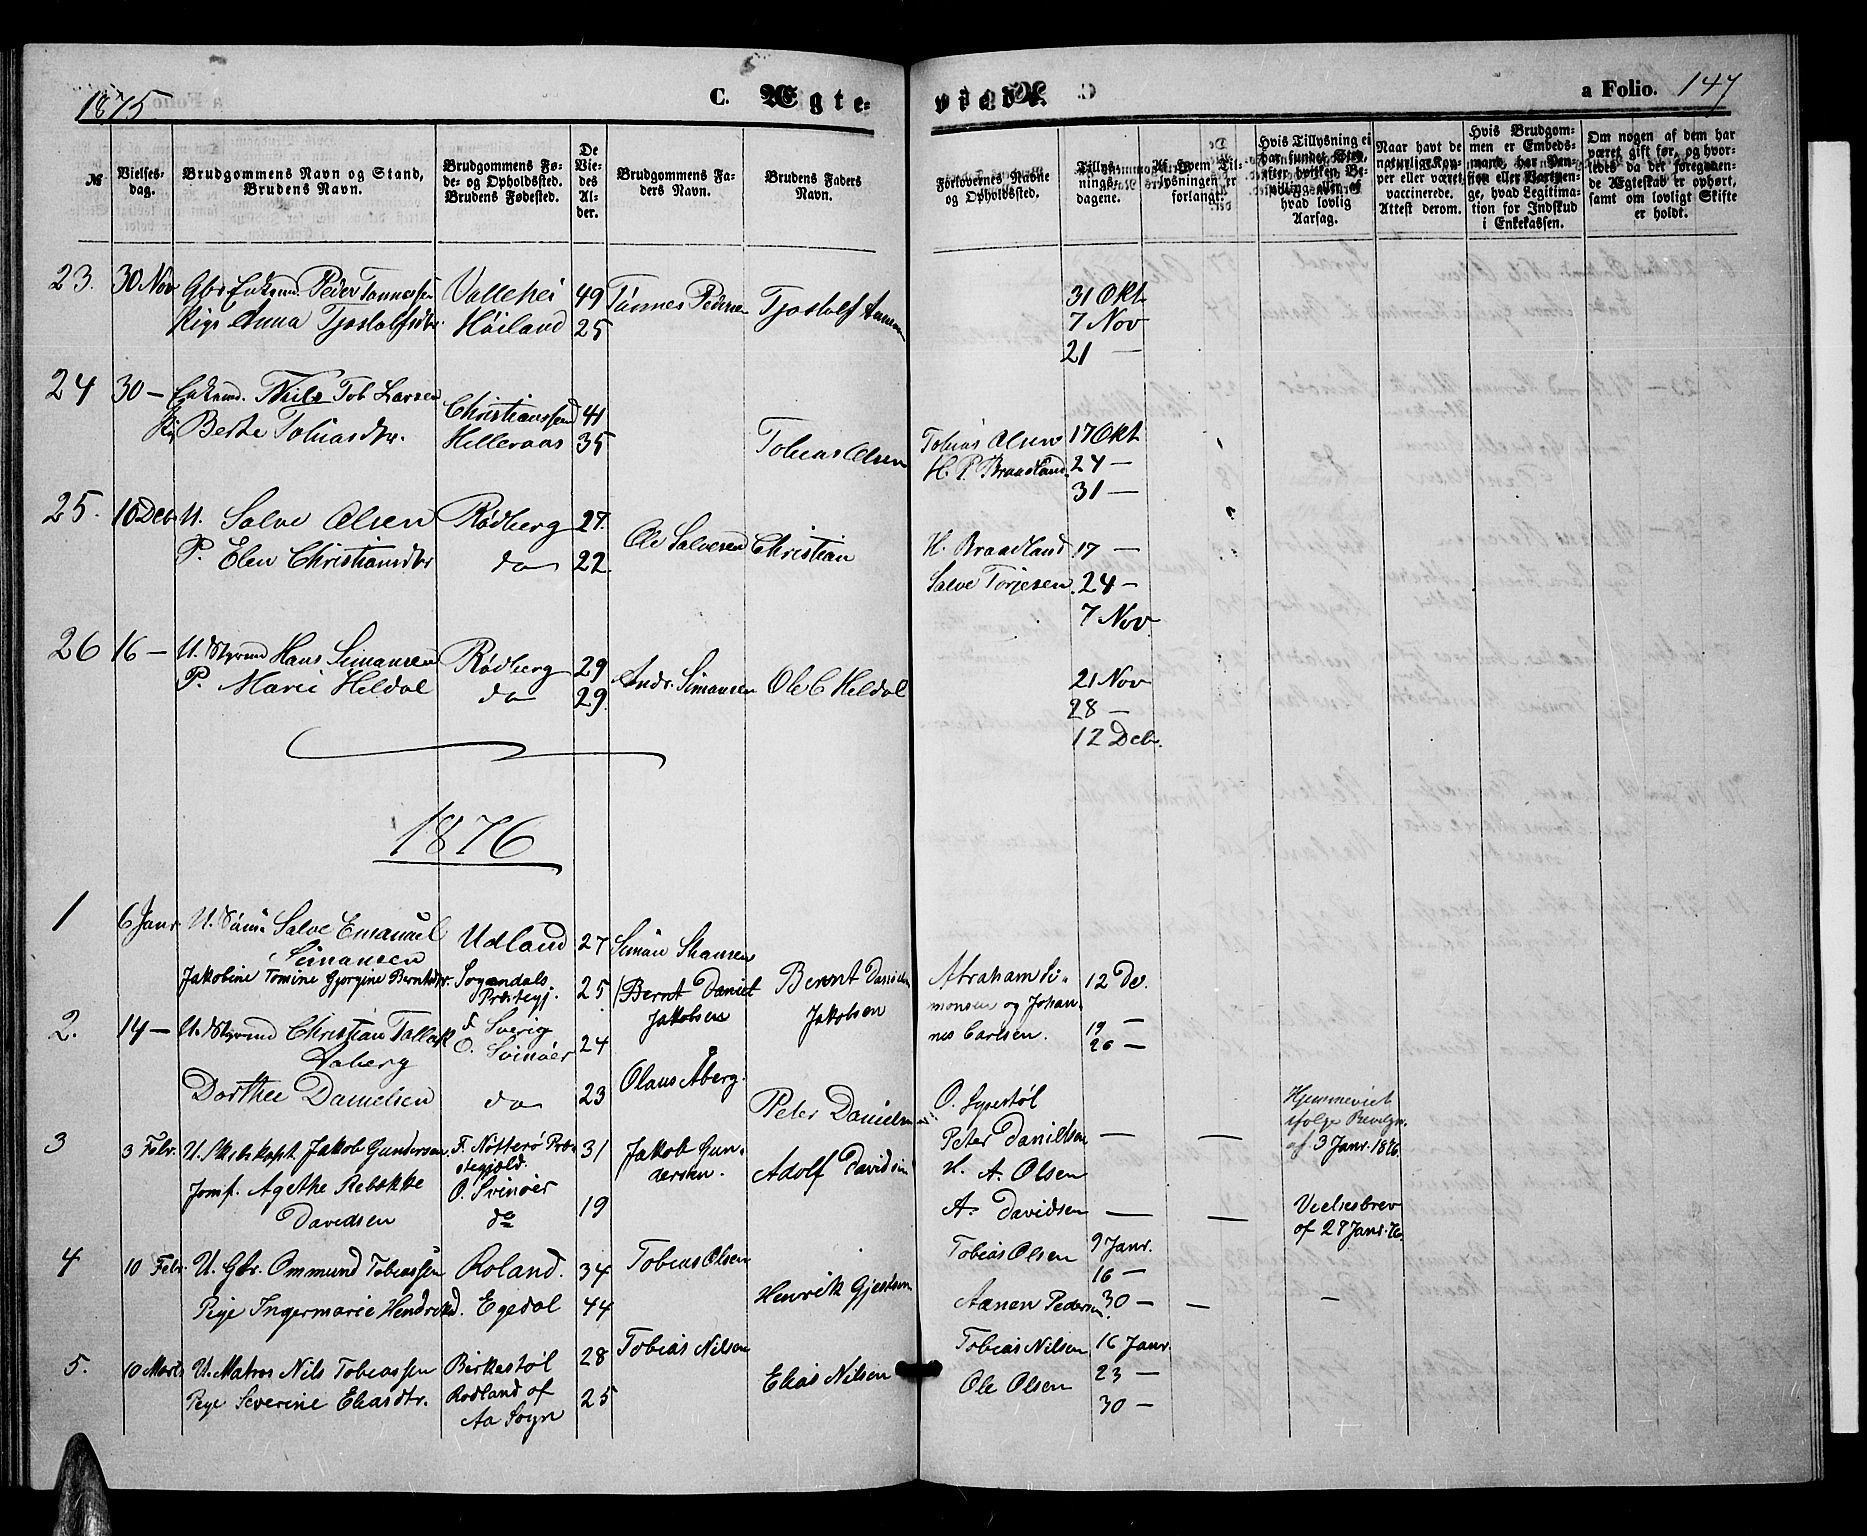 1875 C. Ægte: viede. a Folio. 147
№ Vielses-dag. Brudgommens Navn og Stand, Brudens Navn. Brudgommens Fø-de- og Opholdssted. Brudens Fødested. De Vie-des Al-der. Brudgommens Fa-ders Navn. Brudens Faders Navn. Forlovernes Navne og Opholdssted. Tillys-nings-dagene. Af hvem Til-lysningen er forlangt. Hvis Tillysning ei har fundet Sted, efter hvilken Be-villing eller af hvad lovlig Aarsag. Naar havt de naturlige Kop-per eller været vaccinerede. Attest derom. Hvis Brudgom-men er Embeds-mand, har Pen-sion eller Vartpen-ge, hvad Legitima-tion for Indskud i Enkekassen. Om nogen af dem har været gift før, og hvor-ledes da det foregaaen-de Ægteskab er ophørt, samt om lovligt Skifte er holdt.
23. 30 Nov Gbr. Enkemd. Peder Tønnessen Vallehei 49 Tønnes Pedersen Tjostolf Aanensen 31 Okt
Pige Anna Tjostolfsdtr Høiland 25 7 Nov
21 —
24 30 — Enkemd. Niels Tob Larsen Christianssand 41
Pig Berte Tobiasdtr. Helleraas 35 Tobias Olsen Tobias Olsen 17 Okt
H. P. Braadland 24 —
31 —
25. 10 Deb U. Salve Olsen Rødberg 27. Ole Salvesen Christian H. Braadland 17 —
P. Elen Christiansdtr do 22. Salve Torjesen. 24 —
7 Nov
26 16 — U. Styrmd Hans Simonsen Rødberg 29 Andr. Simonsen Ole C Heldal 21 Nov
P. Marie Heldal do 29. 28 —
12 Debr.
1876
1 6 Janr U. Sømd Salve Emanuel Simonsen Udland 27 Simon
Jakobine Tomine Gjorgine Berntsdtr. Sogndals Præstegj. 25 (Bernt Daniel Jakobsen Bernt Daniel Jakobsen Abraham Si-monsen og Johan-nes Carlsen. 12 De.
19 —
26 —
2. 14 — U. Styrmd Christian Tallack Aaberg F. Sverig O. Svinøer 24 Olaus Åberg.
Dorthee Danielsen do 23 Peter Danielsen O.
Peter Danielsen — — Hjemmeviet ifølge Bevilgn. af 3 Janr. 1876.
3 3 Febr. U. Skibskapt Jakob Gundersen. F. Nøtterø Præ-stegjæld. O. Svinøer 31 Jakob Gun-dersen. Adolf Davidsen H. A. Olsen
Jomf. Agethe Rebekke Davidsen do 19 A. Davidsen — — Vielsesbrev af 27 Janr. 76.
4 10 Febr. U. Gbr. Ommund Tobiassen Roland. 34 Tobias Olsen Tobias Olsen 9 Janr.
16 —
Pige Ingermarie Hendriksd. Egedal 44 Henrik Gjertsen Aanen Pedersen 30 — — —
5. 10 Marts U. Matros Nils Tobiassen Birkestøl 28 Tobias Nilsen Tobias Nilsen 16 Janr.
23 —
Pige Severine Eliasdtr. Rodland af Aa Sogn 25 Elias Nilsen Ole Olsen 30 —